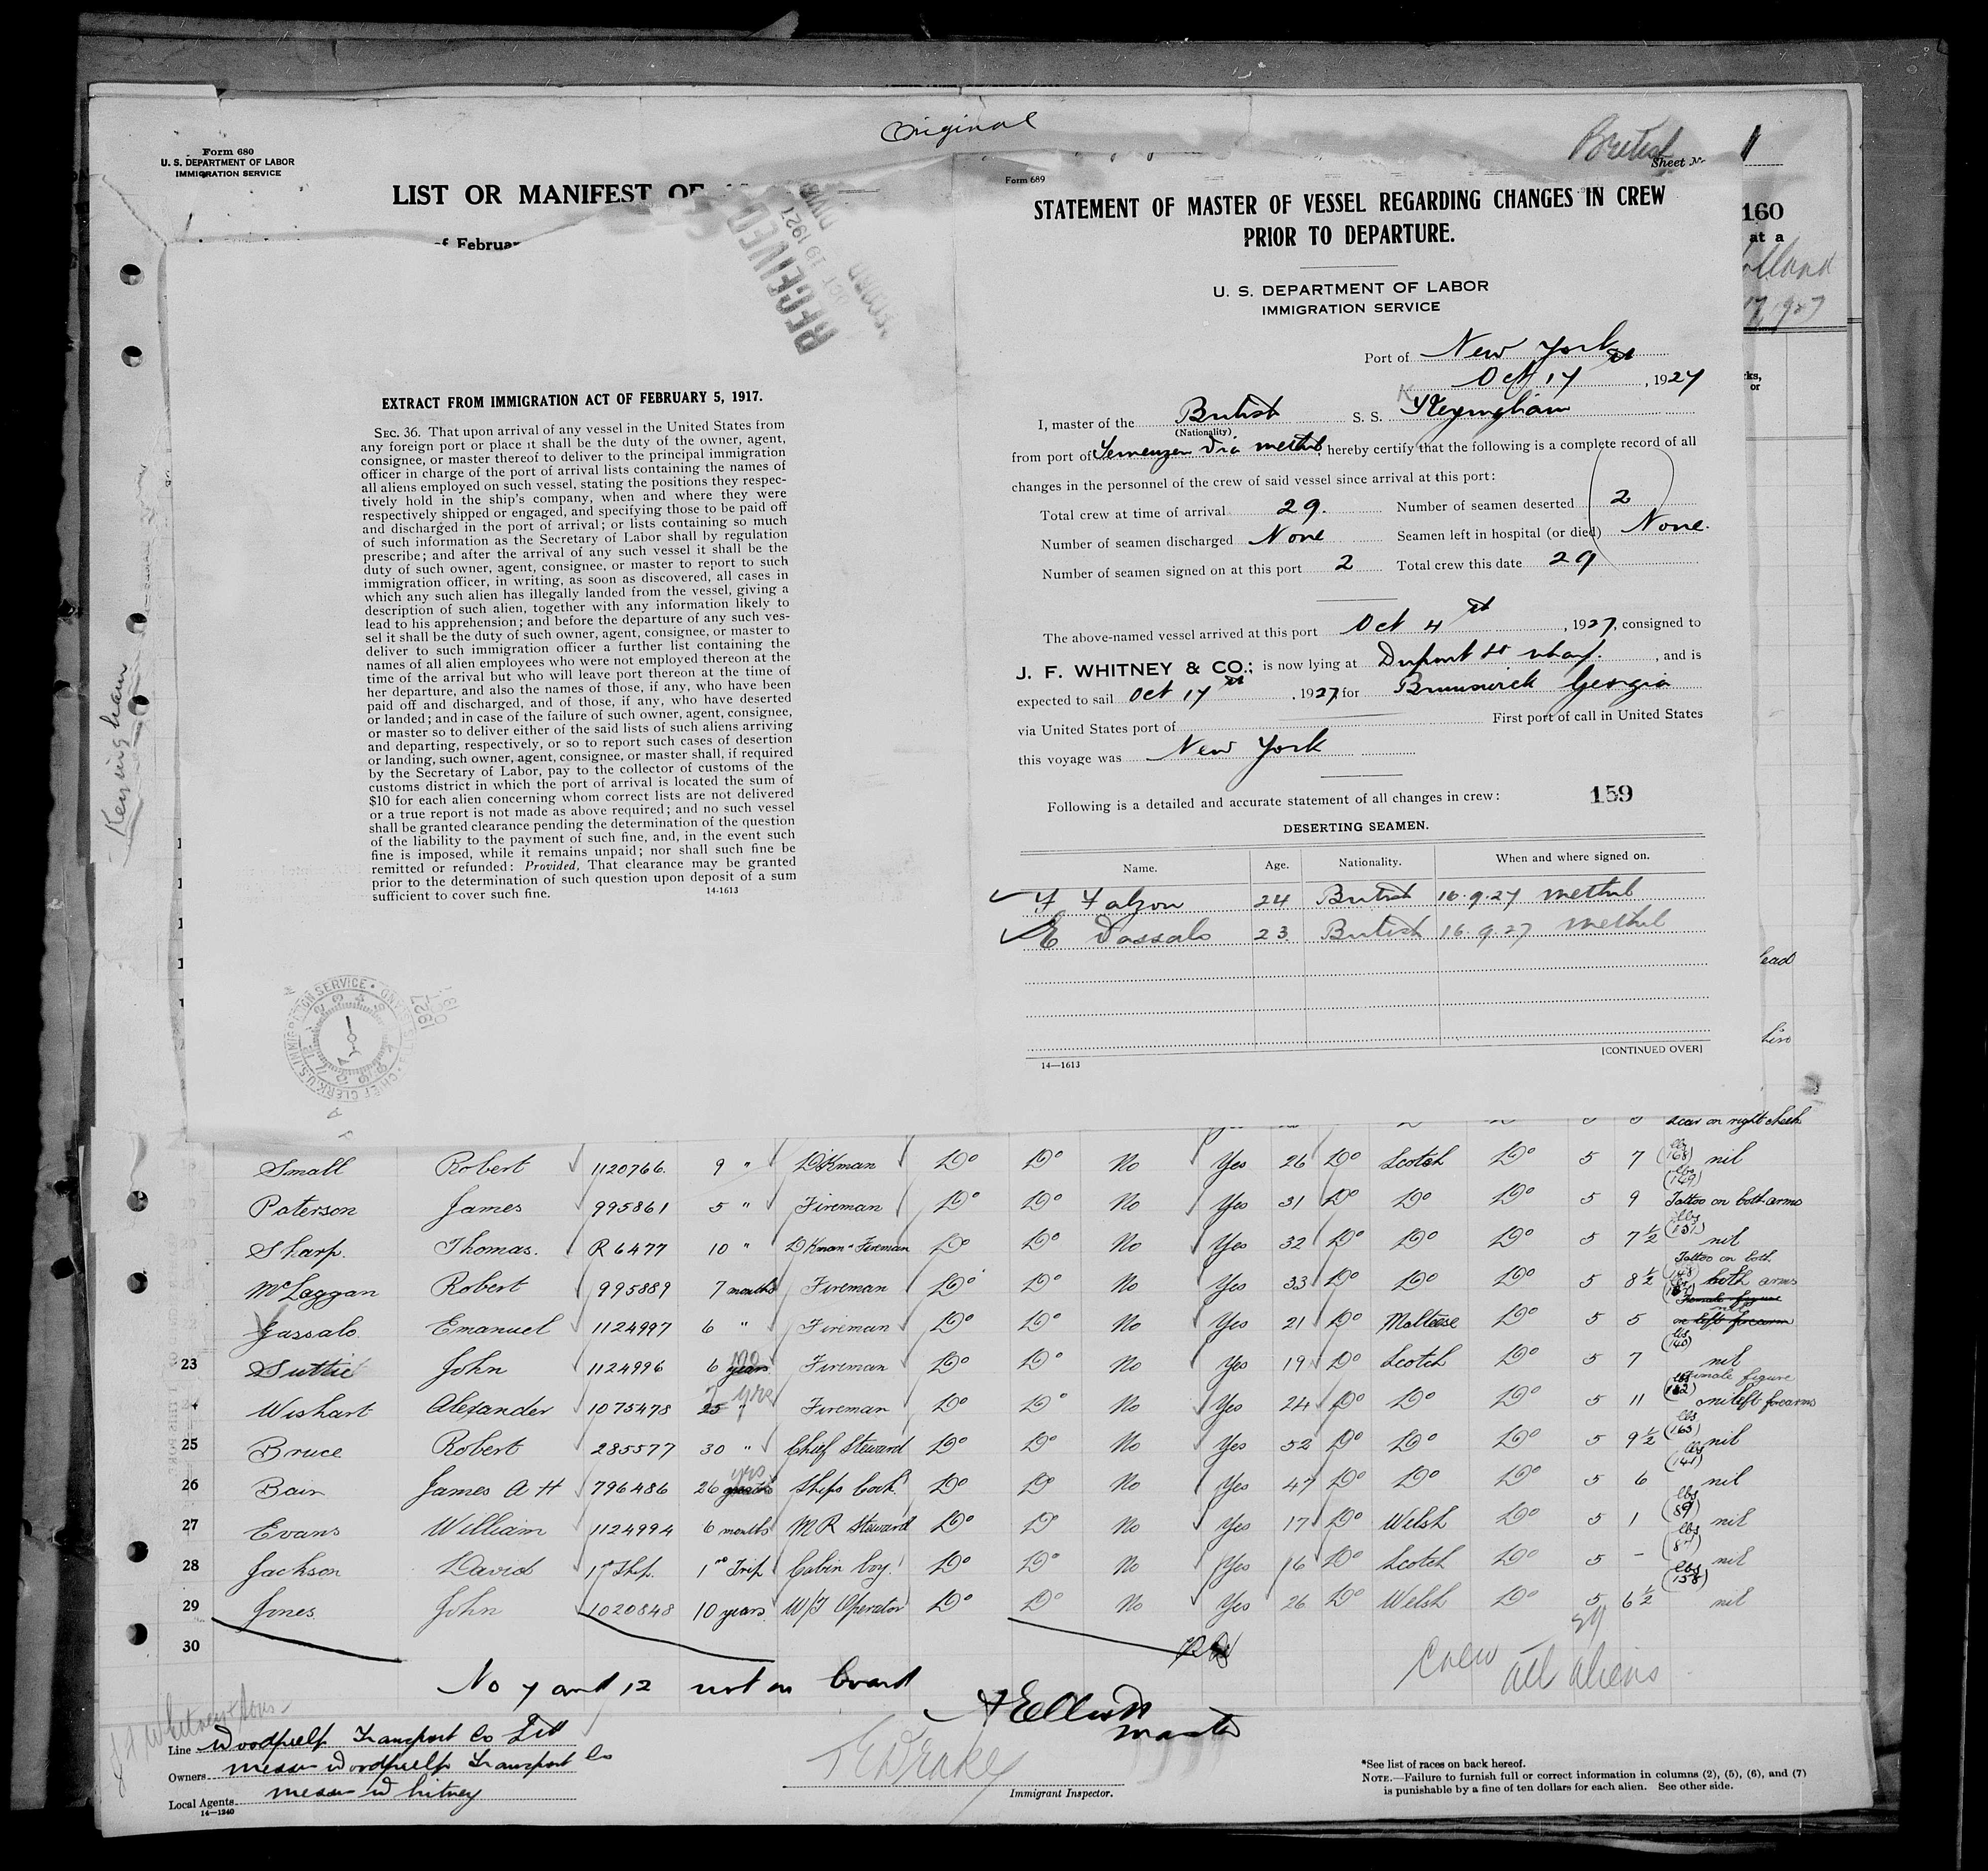 Original
Form 680
U. S. DEPARTMENT OF LABOR
IMMIGRATION SERVICE
LIST OR MANIFEST OF
of Februar
British
Sheet No. 1
160
at a
1927
RECEIVED
OCT 19 1927
RECORD DIVIS
EXTRACT FROM IMMIGRATION ACT OF FEBRUARY 5, 1917.
SEC. 36. That upon arrival of any vessel in the United States from
any foreign port or place it shall be the duty of the owner, agent,
consignee, or master thereof to deliver to the principal immigration
officer in charge of the port of arrival lists containing the names of
all aliens employed on such vessel, stating the positions they respec-
tively hold in the ship's company, when and where they were
respectively shipped or engaged, and specifying those to be paid off
and discharged in the port of arrival; or lists containing so much
of such information as the Secretary of Labor shall by regulation
prescribe; and after the arrival of any such vessel it shall be the
duty of such owner, agent, consignee, or master to report to such
immigration officer, in writing, as soon as discovered, all cases in
which any such alien has illegally landed from the vessel, giving a
description of such alien, together with any information likely to
lead to his apprehension; and before the departure of any such ves-
sel it shall be the duty of such owner, agent, consignee, or master to
deliver to such immigration officer a further list containing the
names of all alien employees who were not employed thereon at the
time of the arrival but who will leave port thereon at the time of
her departure, and also the names of those, if any, who have been
paid off and discharged, and of those, if any, who have deserted
or landed; and in case of the failure of such owner, agent, consignee,
or master so to deliver either of the said lists of such aliens arriving
and departing, respectively, or so to report such cases of desertion
or landing, such owner, agent, consignee, or master shall, if required
by the Secretary of Labor, pay to the collector of customs of the
customs district in which the port of arrival is located the sum of
$10 for each alien concerning whom correct lists are not delivered
or a true report is not made as above required; and no such vessel
shall be granted clearance pending the determination of the question
of the liability to the payment of such fine, and, in the event such
fine is imposed, while it remains unpaid; nor shall such fine be
remitted or refunded: Provided, That clearance may be granted
prior to the determination of such question upon deposit of a sum
sufficient to cover such fine. 14-1613
Form 689
STATEMENT OF MASTER OF VESSEL REGARDING CHANGES IN CREW
PRIOR TO DEPARTURE.
U. S. DEPARTMENT OF LABOR
IMMIGRATION SERVICE
Port of New York
Oct 17 , 1927
I, master of the British S. S. Keyingham
(Nationality)
from port of via Methil, hereby certify that the following is a complete record of all
changes in the personnel of the crew of said vessel since arrival at this port:
Total crew at time of arrival 29. Number of seamen deserted 2
Number of seamen discharged None Seamen left in hospital (or died) None.
Number of seamen signed on at this port 2 Total crew this date 29
The above-named vessel arrived at this port Oct 4 , 1927, consigned to
J. F. WHITNEY & CO.: is now lying at Dupont St wharf. , and is
expected to sail Oct 17 , 1927, for Brunswick Georgia
via United States port of First port of call in United States
this voyage was New York
Following is a detailed and accurate statement of all changes in crew: 159
DESERTING SEAMEN.
Name. Age. Nationality. When and where signed on.
F Falzon 24 British 16.9.27 Methil
E Vassalo 23 British 16.9.27 Methil
[CONTINUED OVER]
14—1613
scar on right cheek
Small Robert 1120766. 9 " DKman Do Do No Yes 26 Do Scotch Do 5 7 (168) nil
Paterson James 995861 5 " Fireman Do Do No Yes 31 Do Do Do 5 9 (149) Tattoo on both arms
Sharp. Thomas. R 6477 10 " DKman & Fireman Do Do No Yes 32 Do Do Do 5 7½ (151) nil
McLaggan Robert 995889 7 months Fireman Do Do No Yes 33 Do Do Do 5 8½ (148) Tattoo on both both arms
Vassalo Emanuel 1124997 6 " Fireman Do Do No Yes 21 Do Malteese Do 5 5 Female figure on left forearm nil
23 Suttie John 1124996 6 years mo Fireman Do Do No Yes 19 Do Scotch Do 5 7 (140) nil
24 Wishart Alexander 1075478 25 " 7 yrs Fireman Do Do No Yes 24 Do Do Do 5 11 (182) Female figure left forearms
25 Bruce Robert 285577 30 " Chief Steward Do Do No Yes 52 Do Do Do 5 9½ (163) nil
26 Bain James A H 796486 26 yrs Ships Cook. Do Do No Yes 47 Do Do Do 5 6 (141) nil
27 Evans William 1124994 6 months M R Steward Do Do No Yes 17 Do Welsh Do 5 1 (89) nil
28 Jackson David 1st Ship. 1st Trip Cabin boy. Do Do No Yes 16 Do Scotch Do 5 - nil
29 Jones John 1020848 10 years W/T Operator Do Do No Yes 26 Do Welsh Do 5 6½ (158) nil
30
29
Crew all aliens
No 7 and 12 not on board
A Elliott
Master
J F Whitney & Sons
Line Woodfield Transport Co Ltd
Owners Messrs Woodfield Transport Co
Local Agents Messrs Whitney
14—1240
T E Drakey
Immigrant Inspector.
*See list of races on back hereof.
NOTE.—Failure to furnish full or correct information in columns (2), (5), (6), and (7)
is punishable by a fine of ten dollars for each alien. See other side.